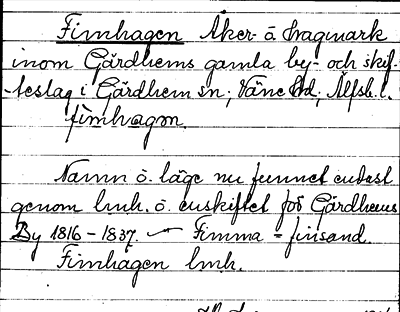 Finnhagen Åker- å hagmark
inom Gärdhems gamla by- och skif-
teslag i Gärdhem sn; Väne hd; Älfsb. l.
fìnnhagon.
Namn o. läge nu funnet endast
genom lmh. o. enskiftet för Gärdhems
By 1816-1837. — Finma = finsand.
Finnhagen lmh.